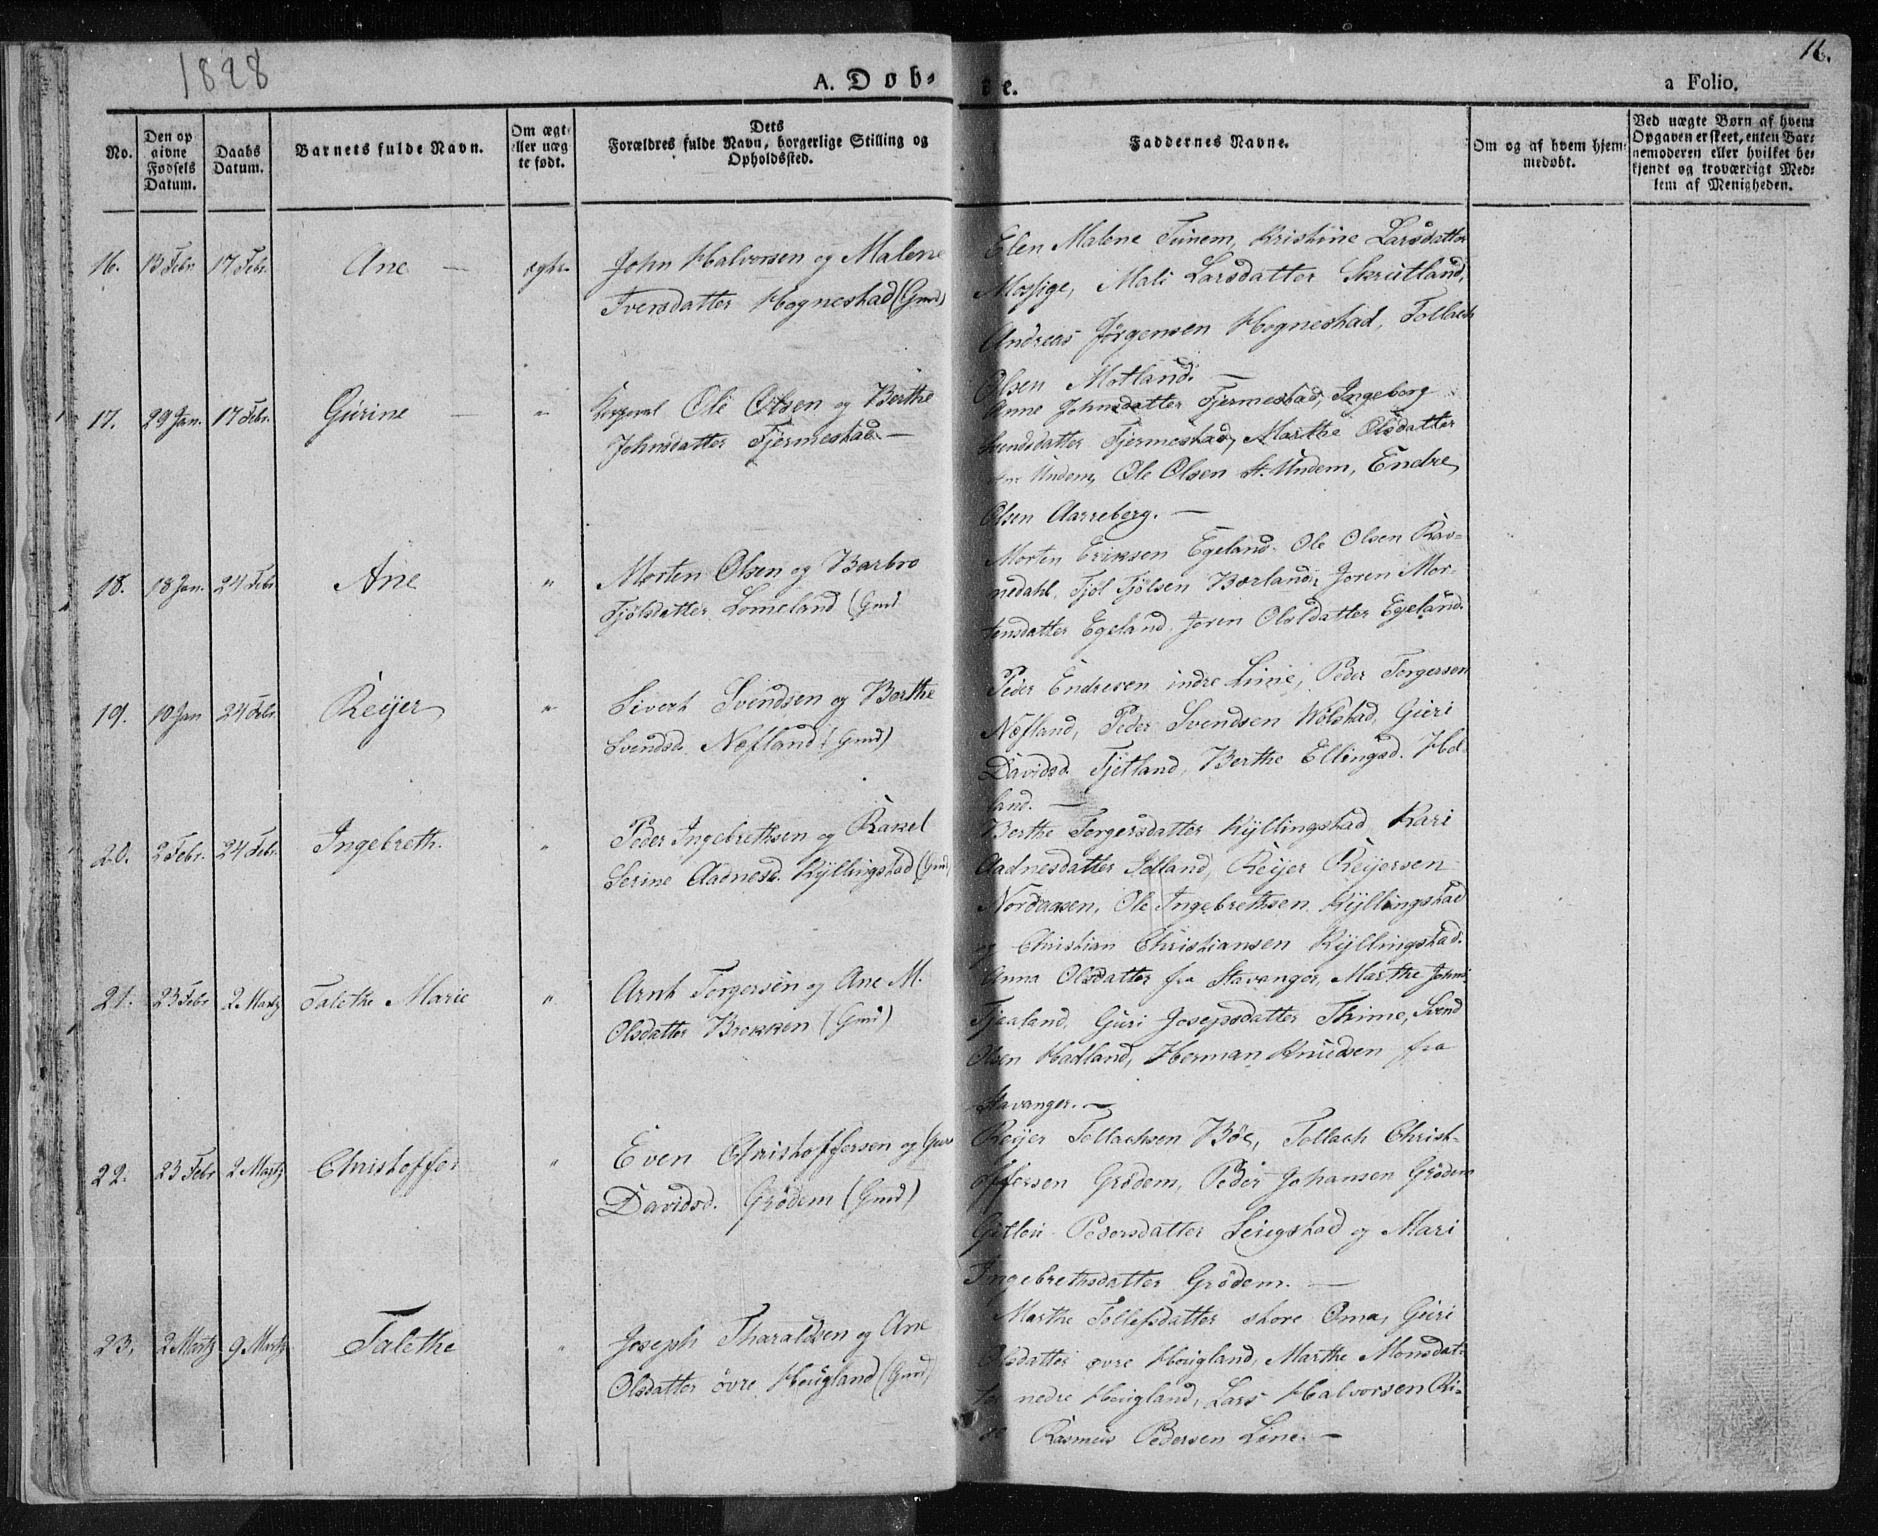 1828
16.
A. Døb- te.
a Folio.
No.
Den op
givne
Fødsels
Datum.
Daabs
Datum.
Barnets fulde Navn.
Om ægte
eller uæg
te født.
Dets
Forældres fulde Navn, borgerlige Stilling og
Opholdssted.
Faddernes Navne.
Om og af hvem hjem-
medøbt.
Ved uægte Børn af hvem
Opgaven er skeet, enten Bar-
nemoderen eller hvilket be-
kjendt og troværdigt Med-
lem af Menigheden.
16. 13 Febr. 17 Febr. Ane — ægte
John Halvorsen og Malene
Iversdatter Hognestad (Gmd)
Elen Malene Tunem, Kristine Larsdatter
Mossige, Mali Larsdatter Skrutland,
Andreas Jørgensen Hognestad, Tollach
Olsen Motland. —
17. 29 Jan. 17 Febr. Gurine — "
Ole Olsen og Berthe
Johnsdatter Fjermestad. —
Anne Johnsdatter Fjermestad, Ingeborg
Svendsdatter Fjermestad, Marthe Olsdatter
Undem, Ole Olsen St. Undem, Endre
Olsen Aarreberg. —
18. 18 Jan. 24 Febr. Ane "
Morten Olsen og Barbro
Fjølsdatter Lomeland (Gmd
Morten Eriksen Egeland, Ole Olsen Rav-
nedahl, Fjøl Fjølsen Børland, Joren Mor-
tensdatter Egeland. Joren Olsdatter Egeland.
19. 10 Jan 24 Febr. Reijer "
Sivert Svendsen og Berthe
Svendsd. Nøfland (Gmd)
Peder Endresen indre Lime, Peder Torgersen
Nøfland, Peder Svendsen Wølstad, Guri
Davidsd. Fjetland, Berthe Ellingsd. Hel-
land. —
20. 2 Febr. 24 Febr. Ingebreth. "
Peder Ingebrethsen og Rakel
Serine Aadnesd. Kyllingstad (Gmd)
Berthe Torgersdatter Kyllingstad, Kari
Aadnesdatter Selland, Reijer Reijersen
Nordaasen, Ole Ingebrethsen Kyllingstad
og Christian Christiansen Kyllingstad.
21. 23 Febr 2 Martz Talethe Marie "
Arnt Torgersen og Ane M.
Olsdatter Brekken (Gmd)
Anna Olsdatter fra Stavanger, Marthe Johns
Fjaaland, Guri Josepsdatter Thime, Svend
Olsen Hadland, Herman Knudsen fra
Stavanger. —
22. 23 Febr 2 Martz Christoffer "
Even Christoffersen og Guri
Davidsd. Grødem (Gmd)
Reijer Tollachsen Bøe, Tollach Christ-
offersen Grødem, Peder Johansen Grødem
Pedersdatter og Mari
Ingebrethsdatter Grødem. —
23. 2 Martz 9 Martz Talethe "
Joseph Tharaldsen og Ane
Olsdatter øvre Hougland (Gmd)
Marthe Tollefsdatter store Oma, Guri
Olsdatter øvre Hougland, Marthe Monsdat-
ter nedre Hougland, Lars Halvorsen Ri-
se Rasmus Pedersen Line. —